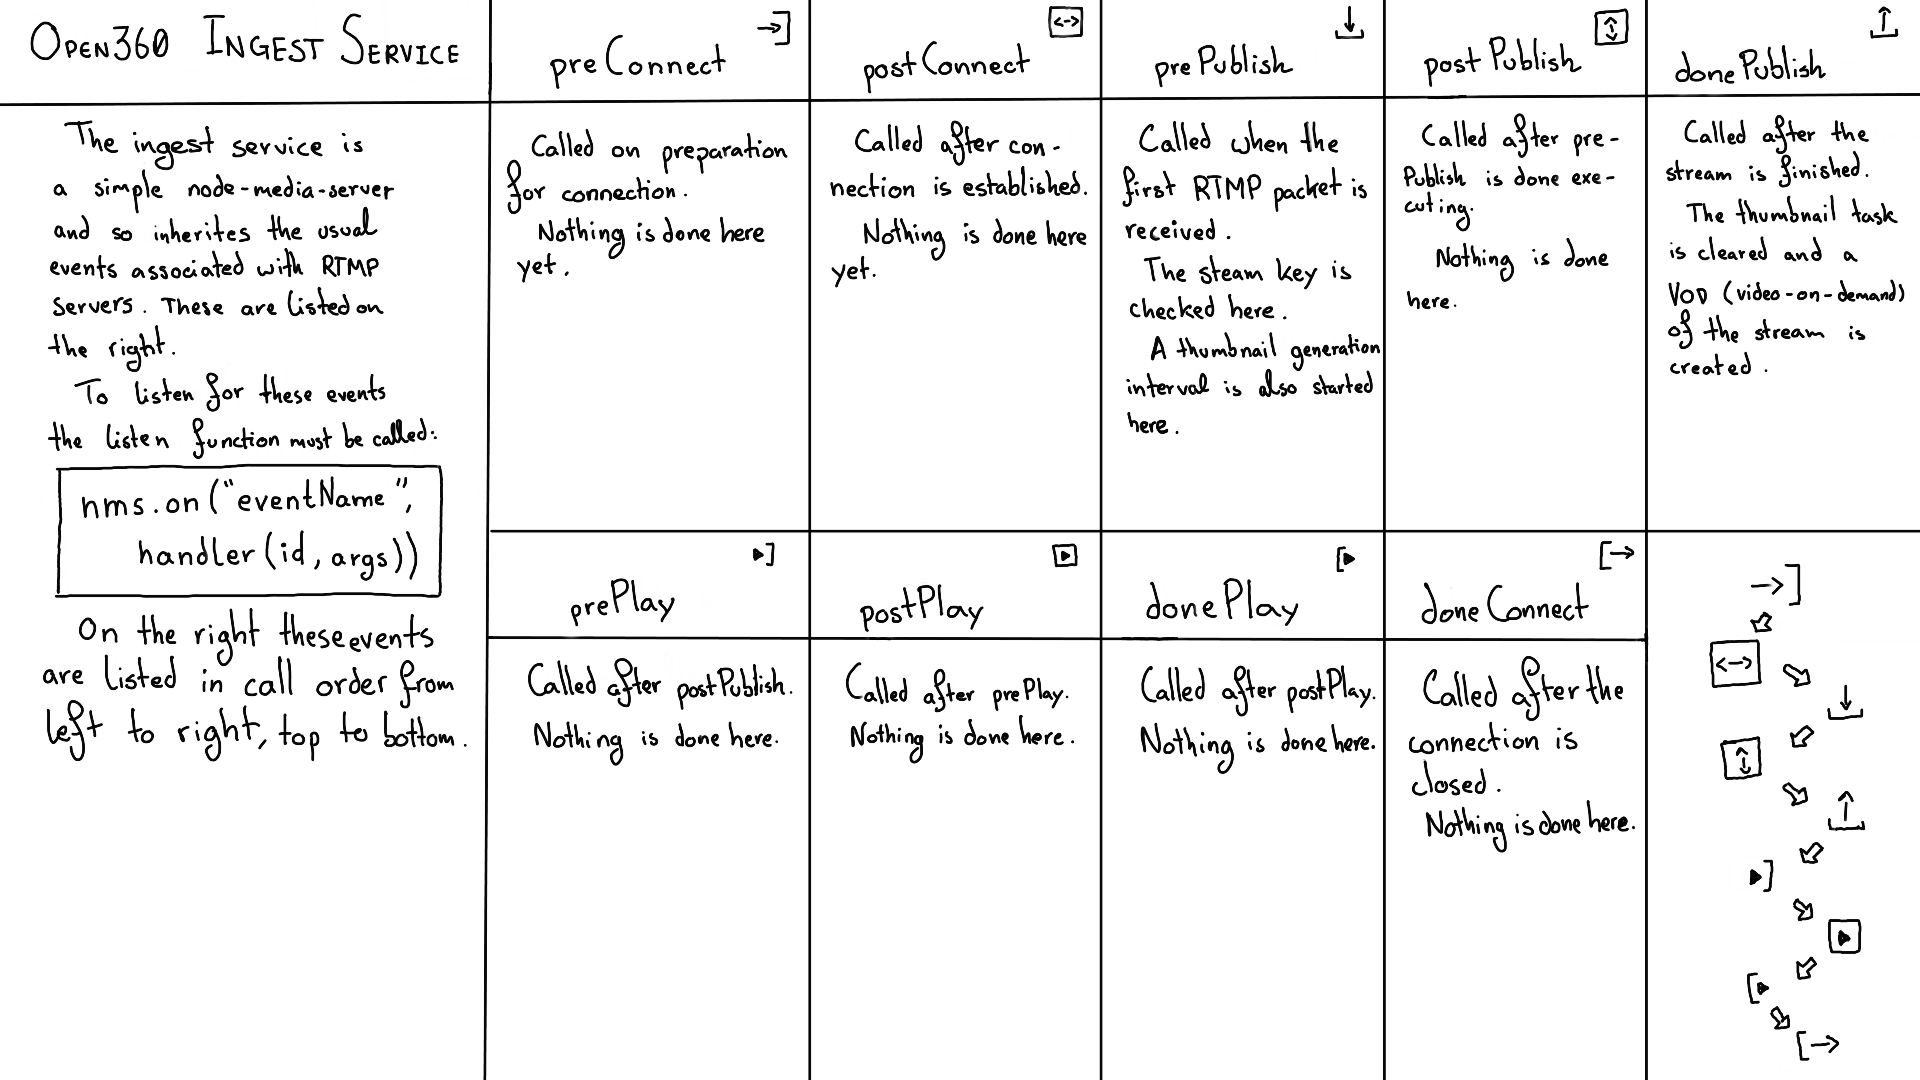 OPEN360 INGEST SERVICE
The ingest service is
a simple node-media-server
and so inherites the usual
events associated with RTMP
servers. These are listed on
the right.
To listen for these events
the listen function must be called:
nms.on("eventName",
handler(id, args))
On the right these events
are listed in call order from
left to right, top to bottom.
preConnect
Called on preparation
for connection.
Nothing is done here
yet.
postConnect
Called after con-
nection is established.
Nothing is done here
yet.
prePublish
Called when the
first RTMP packet is
received.
The steam key is
checked here.
A thumbnail generation
interval is also started
here.
postPublish
Called after pre-
Publish is done exe-
cuting.
Nothing is done
here.
donePublish
Called after the
stream is finished.
The thumbnail task
is cleared and a
VOD (video-on-demand)
of the stream is
created.
prePlay
Called after postPublish.
Nothing is done here.
postPlay
Called after prePlay.
Nothing is done here.
donePlay
Called after postPlay.
Nothing is done here.
doneConnect
Called after the
connection is
closed.
Nothing is done here.